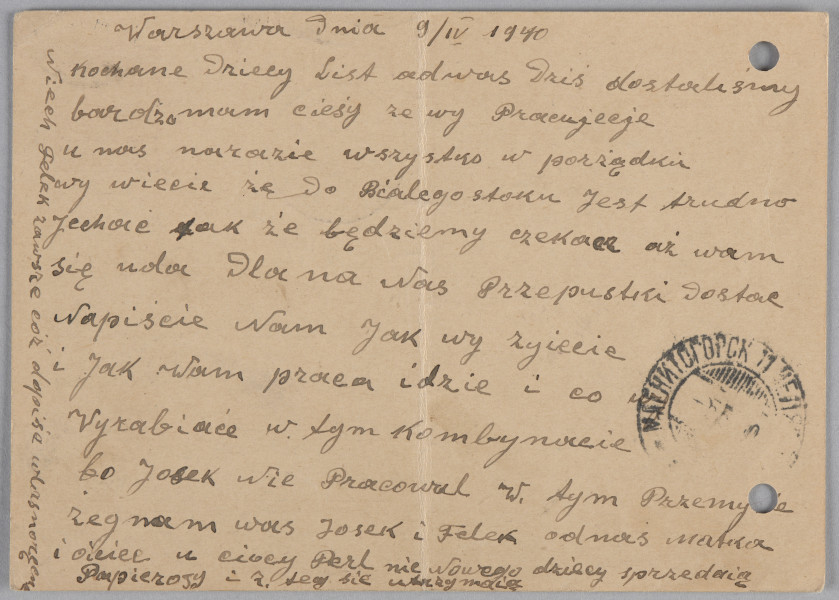 Warszawa Dnia 9/IV 1940
Kochane Dziecy List adwas Dziś dostaliśmy
bardzo mam cieśy ze wy Pracujecje
u nas narazie wszystko w porządku
wy wiecie że Do Białegostoku Jest trudno
Jechać tak że będziemy czekac aż wam
się uda Dla na Nas Przepustki Dostac
Napiście Nam Jak wy zyiecie
i Jak Wam praca idzie i co w
Vyrabiaće w. tym Kombynacie
bo Josek wie Pracowal W. tym Przemyśle
żegnam was Josek i Felek odnas Matka
i oiciec u ciocy Perl nic Nowego dziecy sprzedaią
Papierosy i z. teg się utrzymaią
Niech Felek zawsze coź dopise własnoręcznie
МАГНИТОГОРСК 11 ЧЕЛЯБ